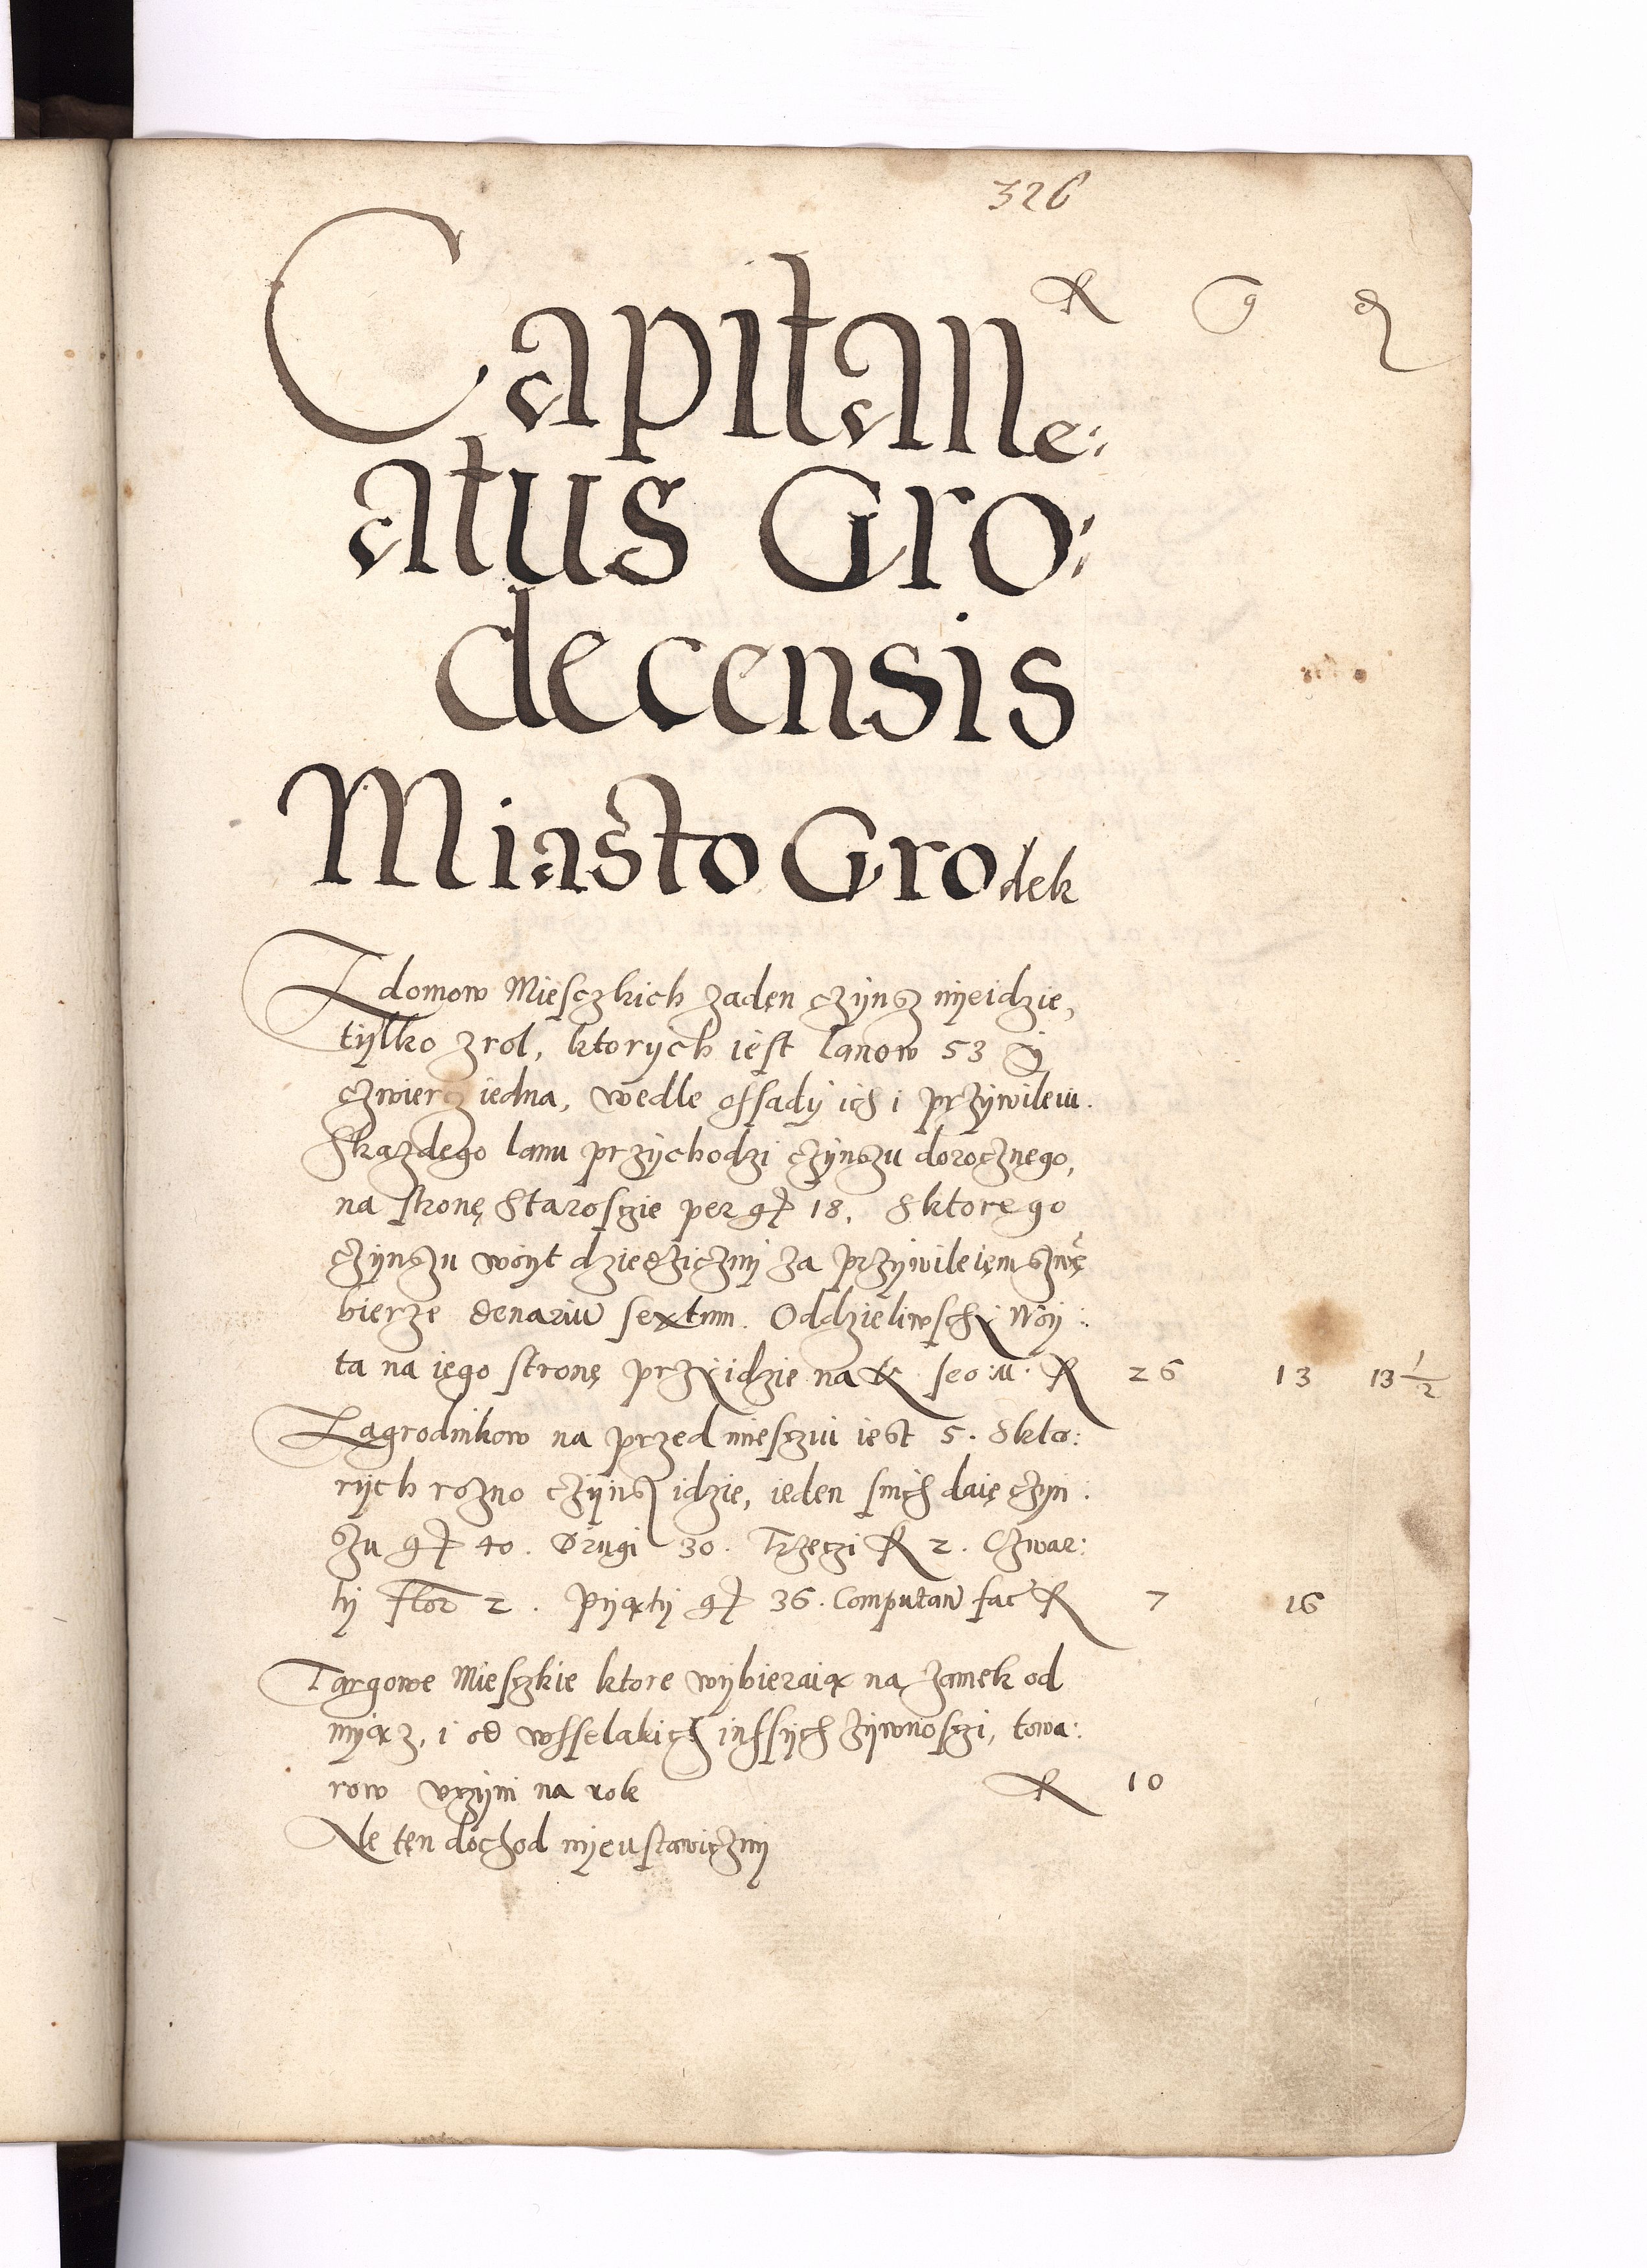 326
R g d
Capitane:
atus Gro:
decensis
Miasto Grodek
Z domow Miesczkich zaden czynsz nyeidzie,
tylko z rol, ktorych iest lanow 53 &
czwiercz iedna, wedle ossady ich i przywileiu.
Skazdego lanu przychodzi czynszu dorocznego,
na stronę Starosczie per gr 18. Sktorego
czynszu woyt dziedziczny za przywileięm
bierze denariu sextum. Oddzieliwschy Woy:
ta na iego stronę przyidzie na R R 26 13 13 1/2
Zagrodnikow na przedmiescziu iest 5. Skto:
rych rozno czynsz idzie, ieden snich daie czyn:
szu gr 40. Drugi 30. Trzeczi R 2. Czwar:
ty flor 2. Pyąty gr 36. Computan fac R 7 16
Targowe Miesczkie ktore wybieraią na zamek od
myąz, i od wsselakich inssych zywnosczi, towa:
row vczyni na rok R 10
Ale ten dochod nyeustawiczny